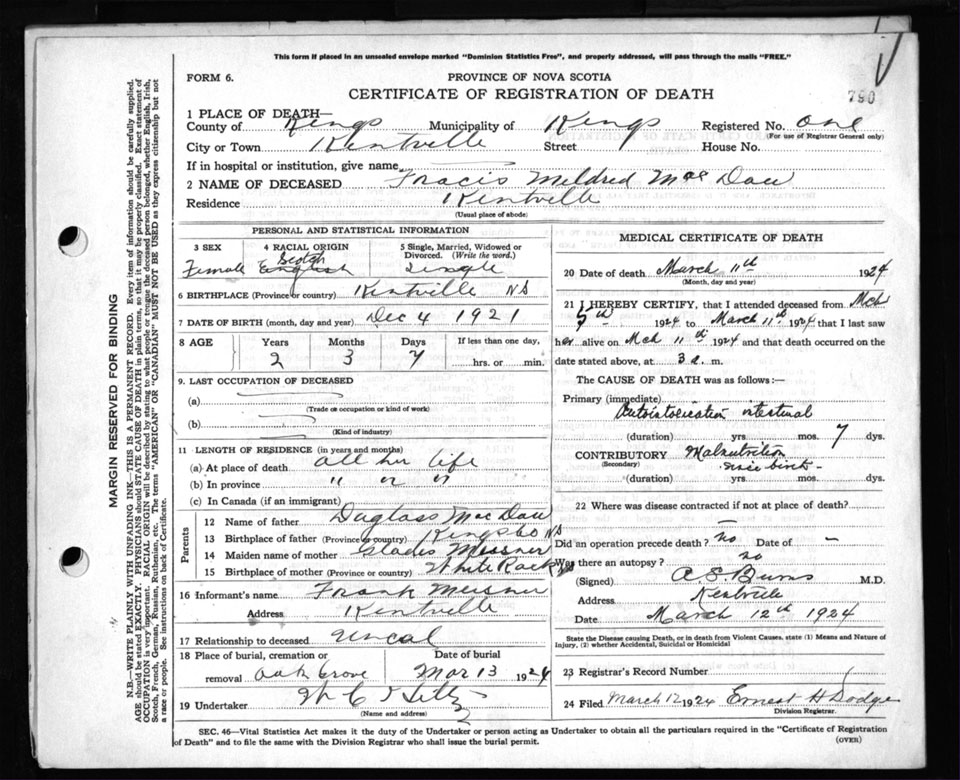 This form if placed in an unsealed envelope marked "Dominion Statistics Free", and properly addressed, will pass through the mails "FREE."
FORM 6.
PROVINCE OF NOVA SCOTIA
CERTIFICATE OF REGISTRATION OF DEATH
790
1 PLACE OF DEATH—
County of Kings Municipality of Kings Registered No. one
(For use of Registrar General only)
City or Town Kentville Street House No.
If in hospital or institution, give name
2 NAME OF DECEASED Fracis Mildred Mac Daw
Residence Kentville
(Usual place of abode)
PERSONAL AND STATISTICAL INFORMATION
3 SEX 4 RACIAL ORIGIN 5 Single, Married, Widowed or Divorced. (Write the word.)
Female Scotch English Single
6 BIRTHPLACE (Province or country) Kentville NS
7 DATE OF BIRTH (month, day and year) Dec 4 1921
8 AGE Years Months Days If less than one day,
2 3 7 hrs. or min.
9. LAST OCCUPATION OF DECEASED
(a)
(Trade or occupation or kind of work)
(b)
(Kind of industry)
11 LENGTH OF RESIDENCE (in years and months)
(a) At place of death all her life
(b) In province " " "
(c) In Canada (if an immigrant)
Parents
12 Name of father Duglass Mac Daw
13 Birthplace of father (Province or country) NS
14 Maiden name of mother Gladis Missner
15 Birthplace of mother (Province or country) White Rock NS
16 Informant's name Frank Meisner
Address Kentville
17 Relationship to deceased Uncal
18 Place of burial, cremation or removal Date of burial
Oak Grove Mar 13 1924
19 Undertaker W C
(Name and address)
MEDICAL CERTIFICATE OF DEATH
20 Date of death March 11th 1924
(Month, day and year)
21 I HEREBY CERTIFY, that I attended deceased from Mch
5th 1924 to March 11th 1924 that I last saw
her alive on Mch 11th 1924 and that death occurred on the
date stated above, at 3 a. m.
The CAUSE OF DEATH was as follows:—
Primary (immediate)
Autointoxication intestinal
(duration) yrs mos. 7 dys.
CONTRIBUTORY Malnutrition
(Secondary) since birth -
(duration) yrs. mos. dys.
22 Where was disease contracted if not at place of death?
Did an operation precede death? no Date of -
Was there an autopsy? no
(Signed) A. S. Burns M.D.
Address Kentville
Date March 12th 1924
State the Disease causing Death, or in death from Violent Causes, state (1) Means and Nature of
Injury, (2) whether Accidental, Suicidal or Homicidal
23 Registrar's Record Number
24 Filed March 12 1924 Ernest H Dodge
Division Registrar.
SEC. 46—Vital Statistics Act makes it the duty of the Undertaker or person acting as Undertaker to obtain all the particulars required in the "Certificate of Registration
of Death" and to file the same with the Division Registrar who shall issue the burial permit. (OVER)
MARGIN RESERVED FOR BINDING
N.B.—WRITE PLAINLY WITH UNFADING INK—THIS IS A PERMANENT RECORD. Every item of information should be carefully supplied.
AGE should be stated EXACTLY. PHYSICIANS should STATE CAUSE OF DEATH in plain terms, so that it may be properly classified. Exact statement of
OCCUPATION is very important. RACIAL ORIGIN will be described by stating to what people or tongue the deceased person belonged, whether English, Irish,
Scotch, French, German, Russian, Ruthenian, etc. The terms "AMERICAN" OR "CANADIAN" MUST NOT BE USED as they express citizenship but not
a race or people. See instructions on back of Certificate.